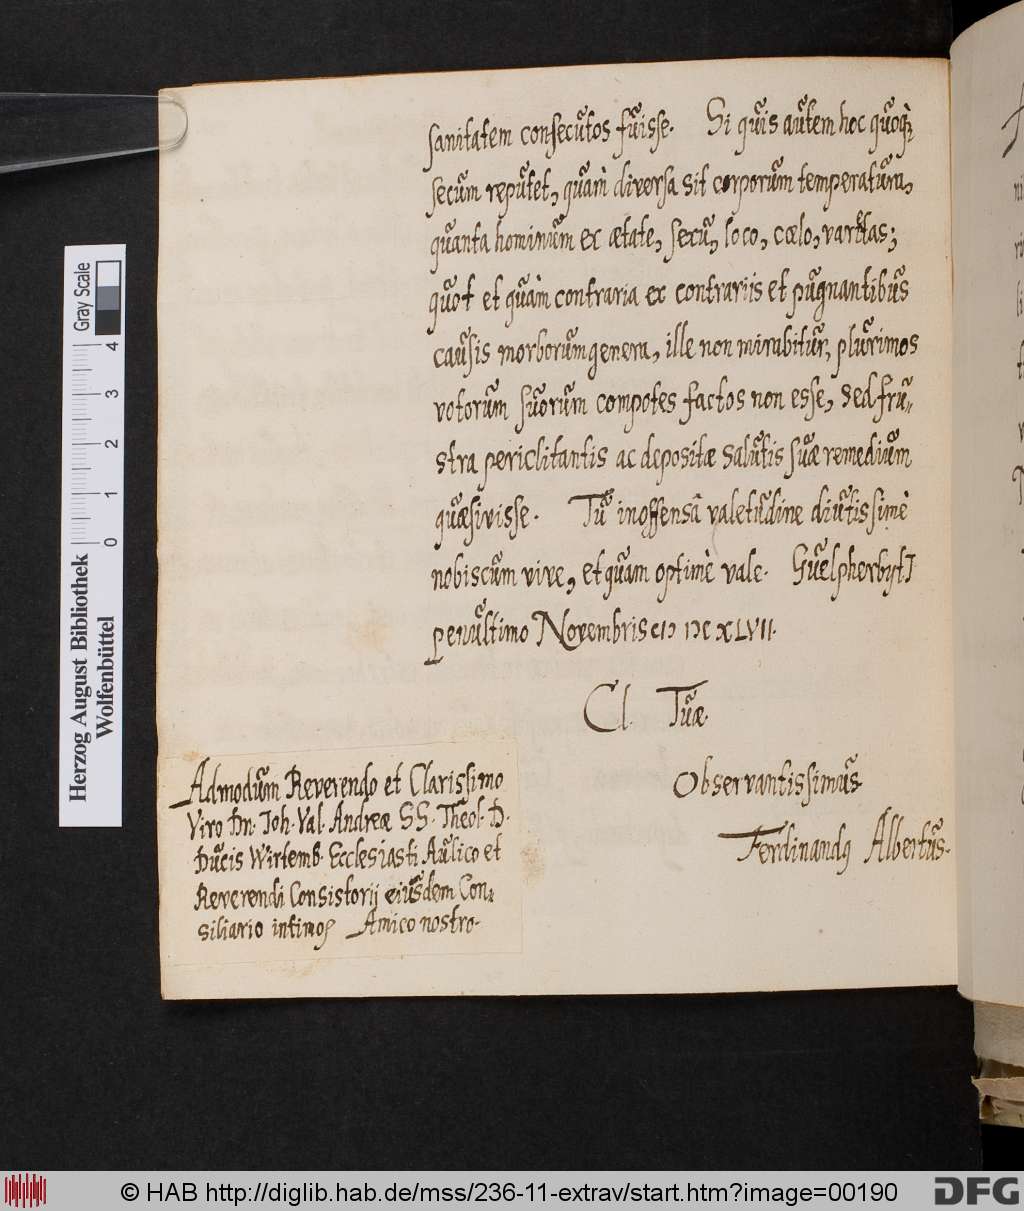 sanitatem consecutos fuisse. Si quis autem hoc quoq;
secum reputet, quàm diversa sit corporum temperatura,
quanta hominum ex ætate, sexu, loco, cœlo, varietas;
quot et quàm contraria ex contrariis et pugnantibus
causis morborum genera, ille non mirabitur, plurimos
votorum suorum compotes factos non esse, sed fru-
stra periclitantis ac depositæ salutis suæ remedium
quæsivisse. Tu inoffensâ valetudine diutissimè
nobiscum vive, et quam optimè vale. Guelpherbyti
penultimo Novembris CIƆ IƆC XLVII.
Cl. Tuæ.
Observantissimus
Ferdinandq Albertus.
Admodum Reverendo et Clarissimo
Viro Dn. Joh. Val. Andreæ SS. Theol. D.
Ducis Wirtemb. Ecclesiasti Aulico et
Reverendi Consistorij eiusdem Con-
siliario intimo, Amico nostro.
Herzog August Bibliothek
Wolfenbüttel
0 1 2 3 4
Gray Scale
© HAB http://diglib.hab.de/mss/236-11-extrav/start.htm?image=00190
DFG